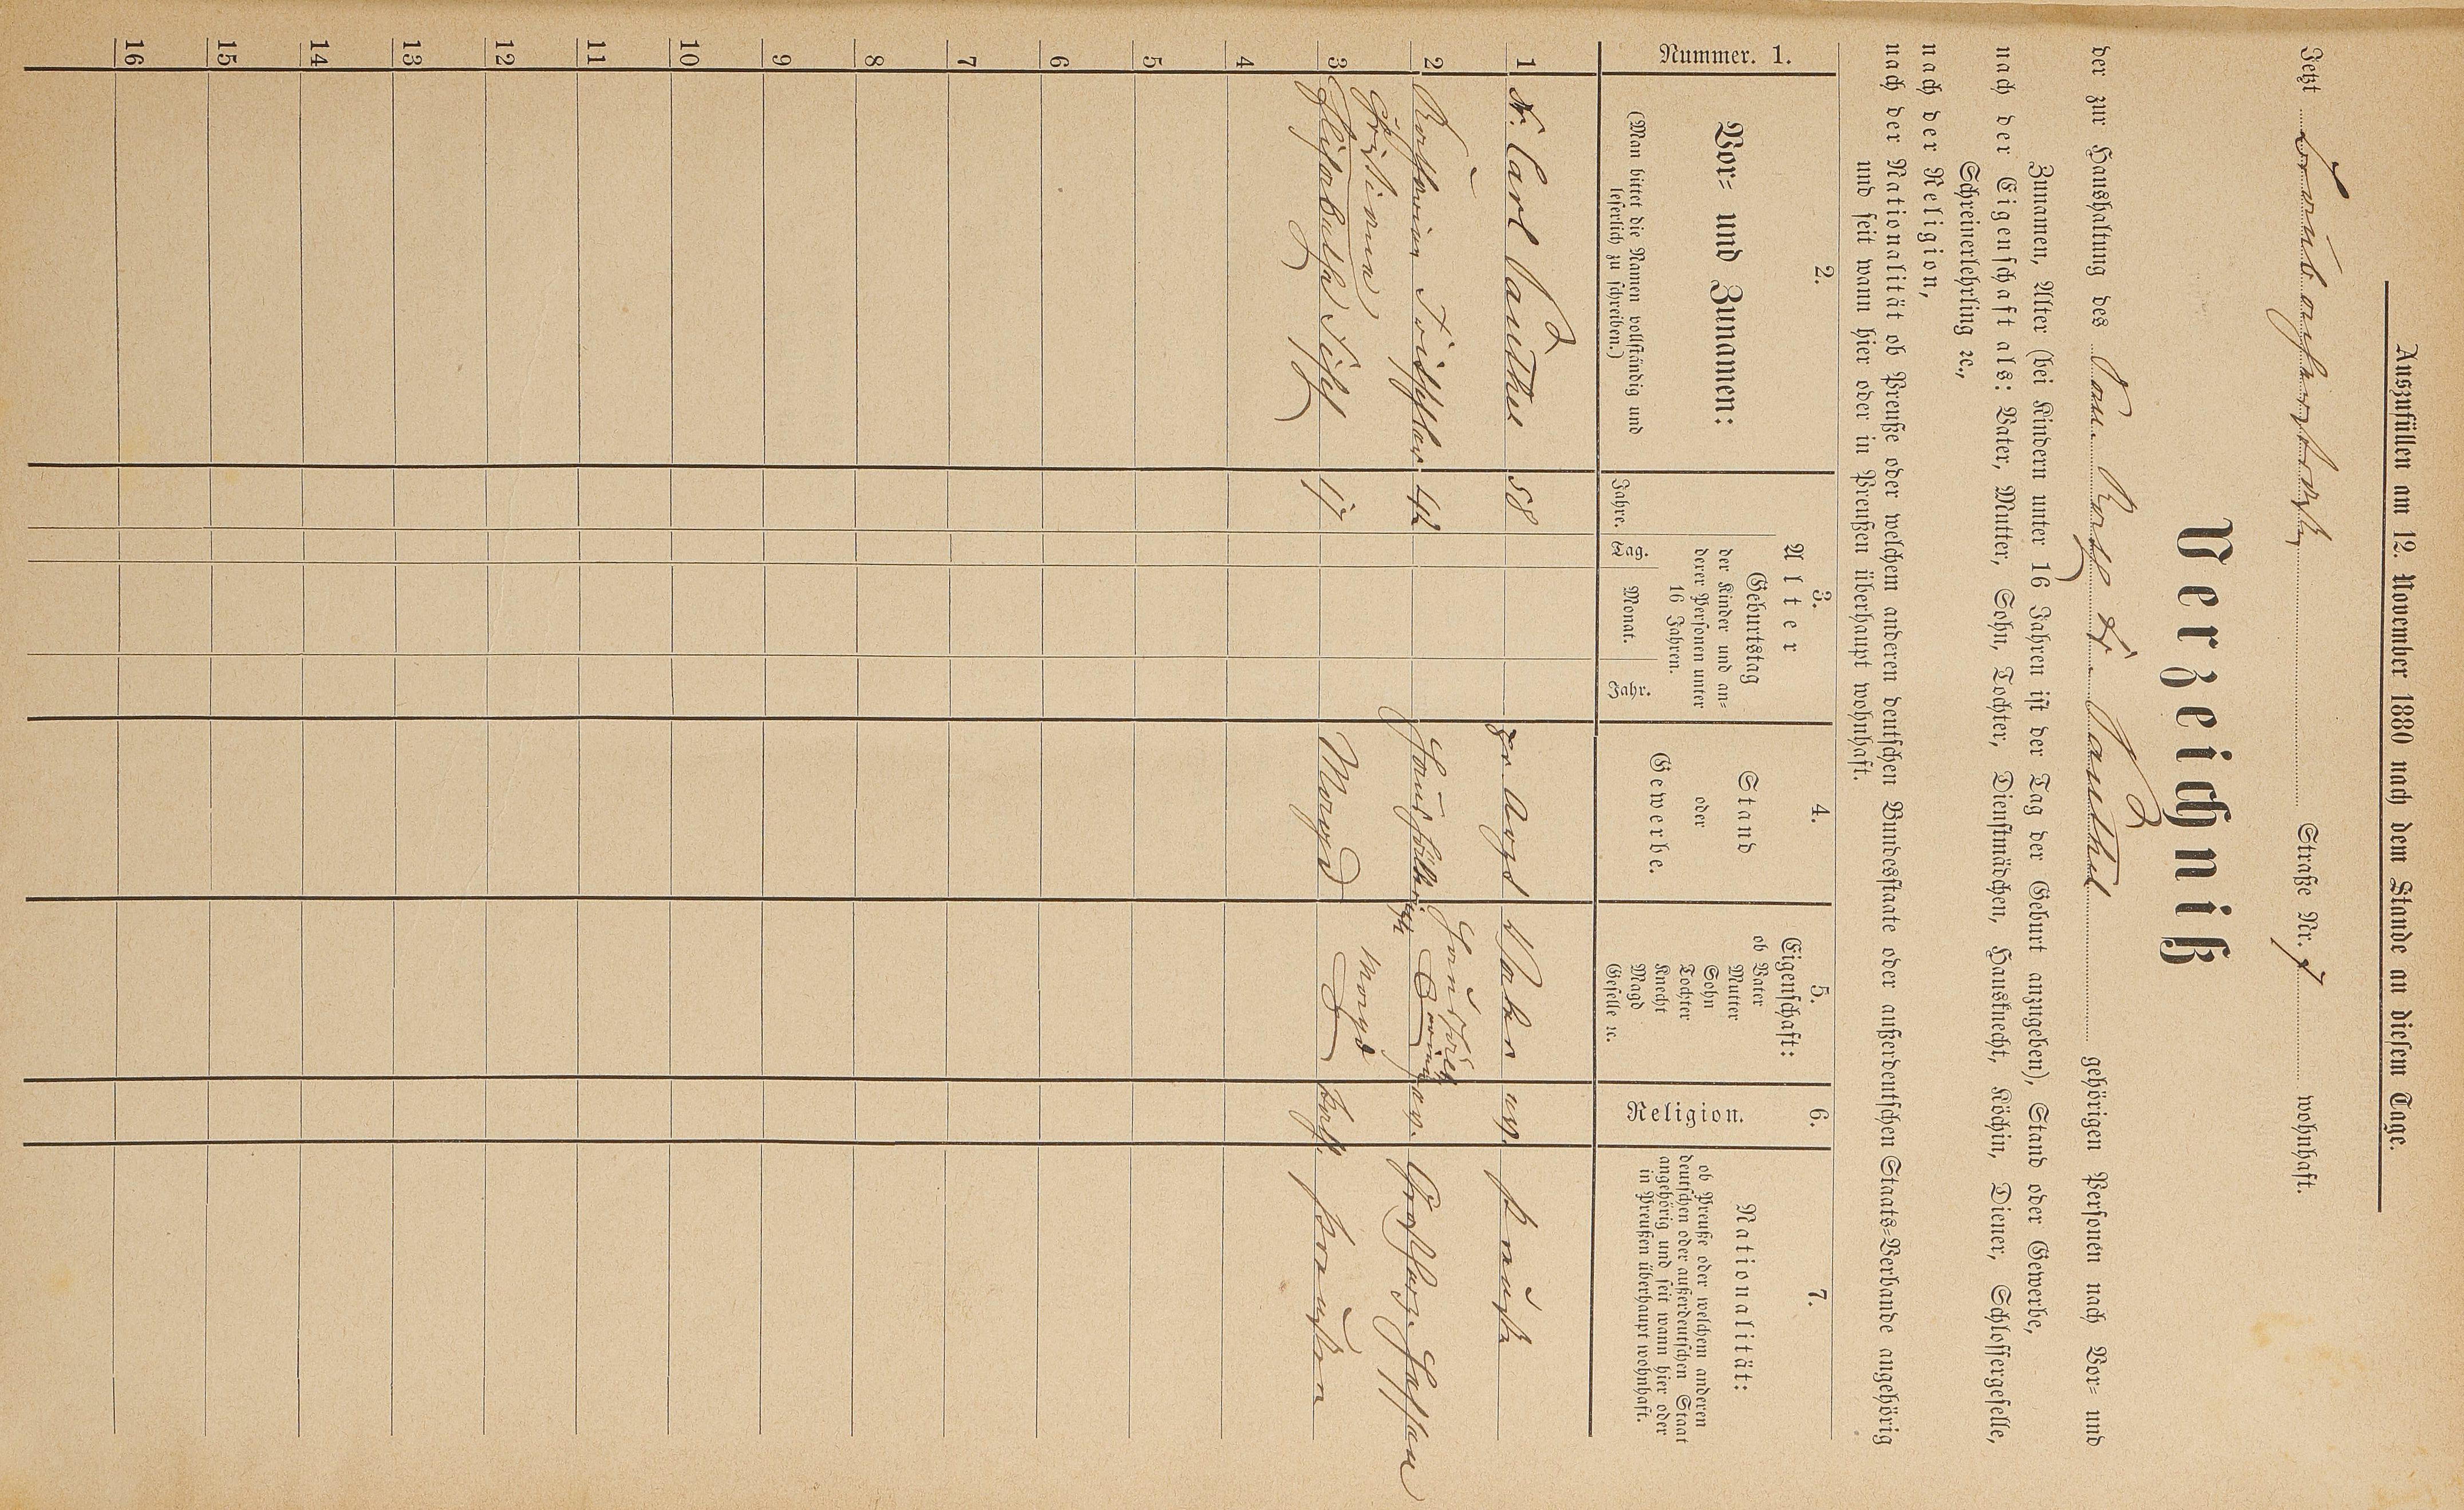 Auszufüllen am 12. November 1880 nach dem Stande an diesem Tage.
Jetzt Straße Nr. wohnhaft.
Verzeichniß
der zur Haushaltung des San. Rath Dr. gehörigen Personen nach Vor- und
Zunamen, Alter (bei Kindern unter 16 Jahren ist der Tag der Geburt anzugeben), Stand oder Gewerbe,
nach der Eigenschaft als: Vater, Mutter, Sohn, Tochter, Dienstmädchen, Hausknecht, Köchin, Diener, Schlossergeselle,
Schreinerlehrling ꝛc.,
nach der Religion,
nach der Nationalität ob Preuße oder welchem anderen deutschen Bundesstaate oder außerdeutschen Staats-Verbande angehörig
und seit wann hier oder in Preußen überhaupt wohnhaft.
Nummer. 1.
2.
Vor- und Zunamen:
(Man bittet die Namen vollständig und
leserlich zu schreiben.)
3.
Alter
Jahre.
Geburtstag
der Kinder und an-
derer Personen unter
16 Jahren.
Tag. Monat. Jahr.
4.
Stand
oder
Gewerbe.
5.
Eigenschaft:
ob Vater
Mutter
Sohn
Tochter
Knecht
Magd
Geselle ꝛc.
6.
Religion.
7.
Nationalität:
ob Preuße oder welchem anderen
deutschen oder außerdeutschen Staat
angehörig und seit wann hier oder
in Preußen überhaupt wohnhaft.
1 Dr. Carl 58 pr Arzt Vater ev. Preuße
2 Katharina 42 Haushälterin ev. Großherz. Hessen
Christiane
3 Elisabetha 17 Magd Magd kath. Preußen
4
5
6
7
8
9
10
11
12
13
14
15
16